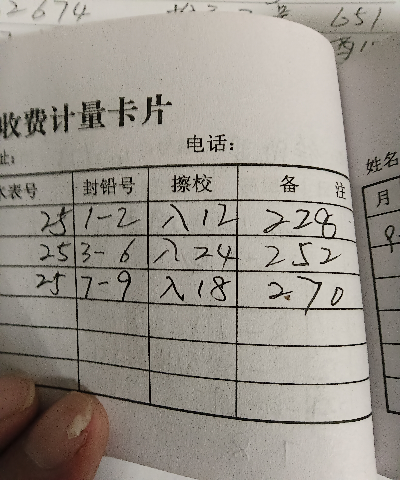 2674
651
收费计量卡片
址: 电话:
水表号 封铅号 擦校 备 注
25 1-2 入12 228
25 3-6 入24 252
25 7-9 入18 270
姓名
月
9